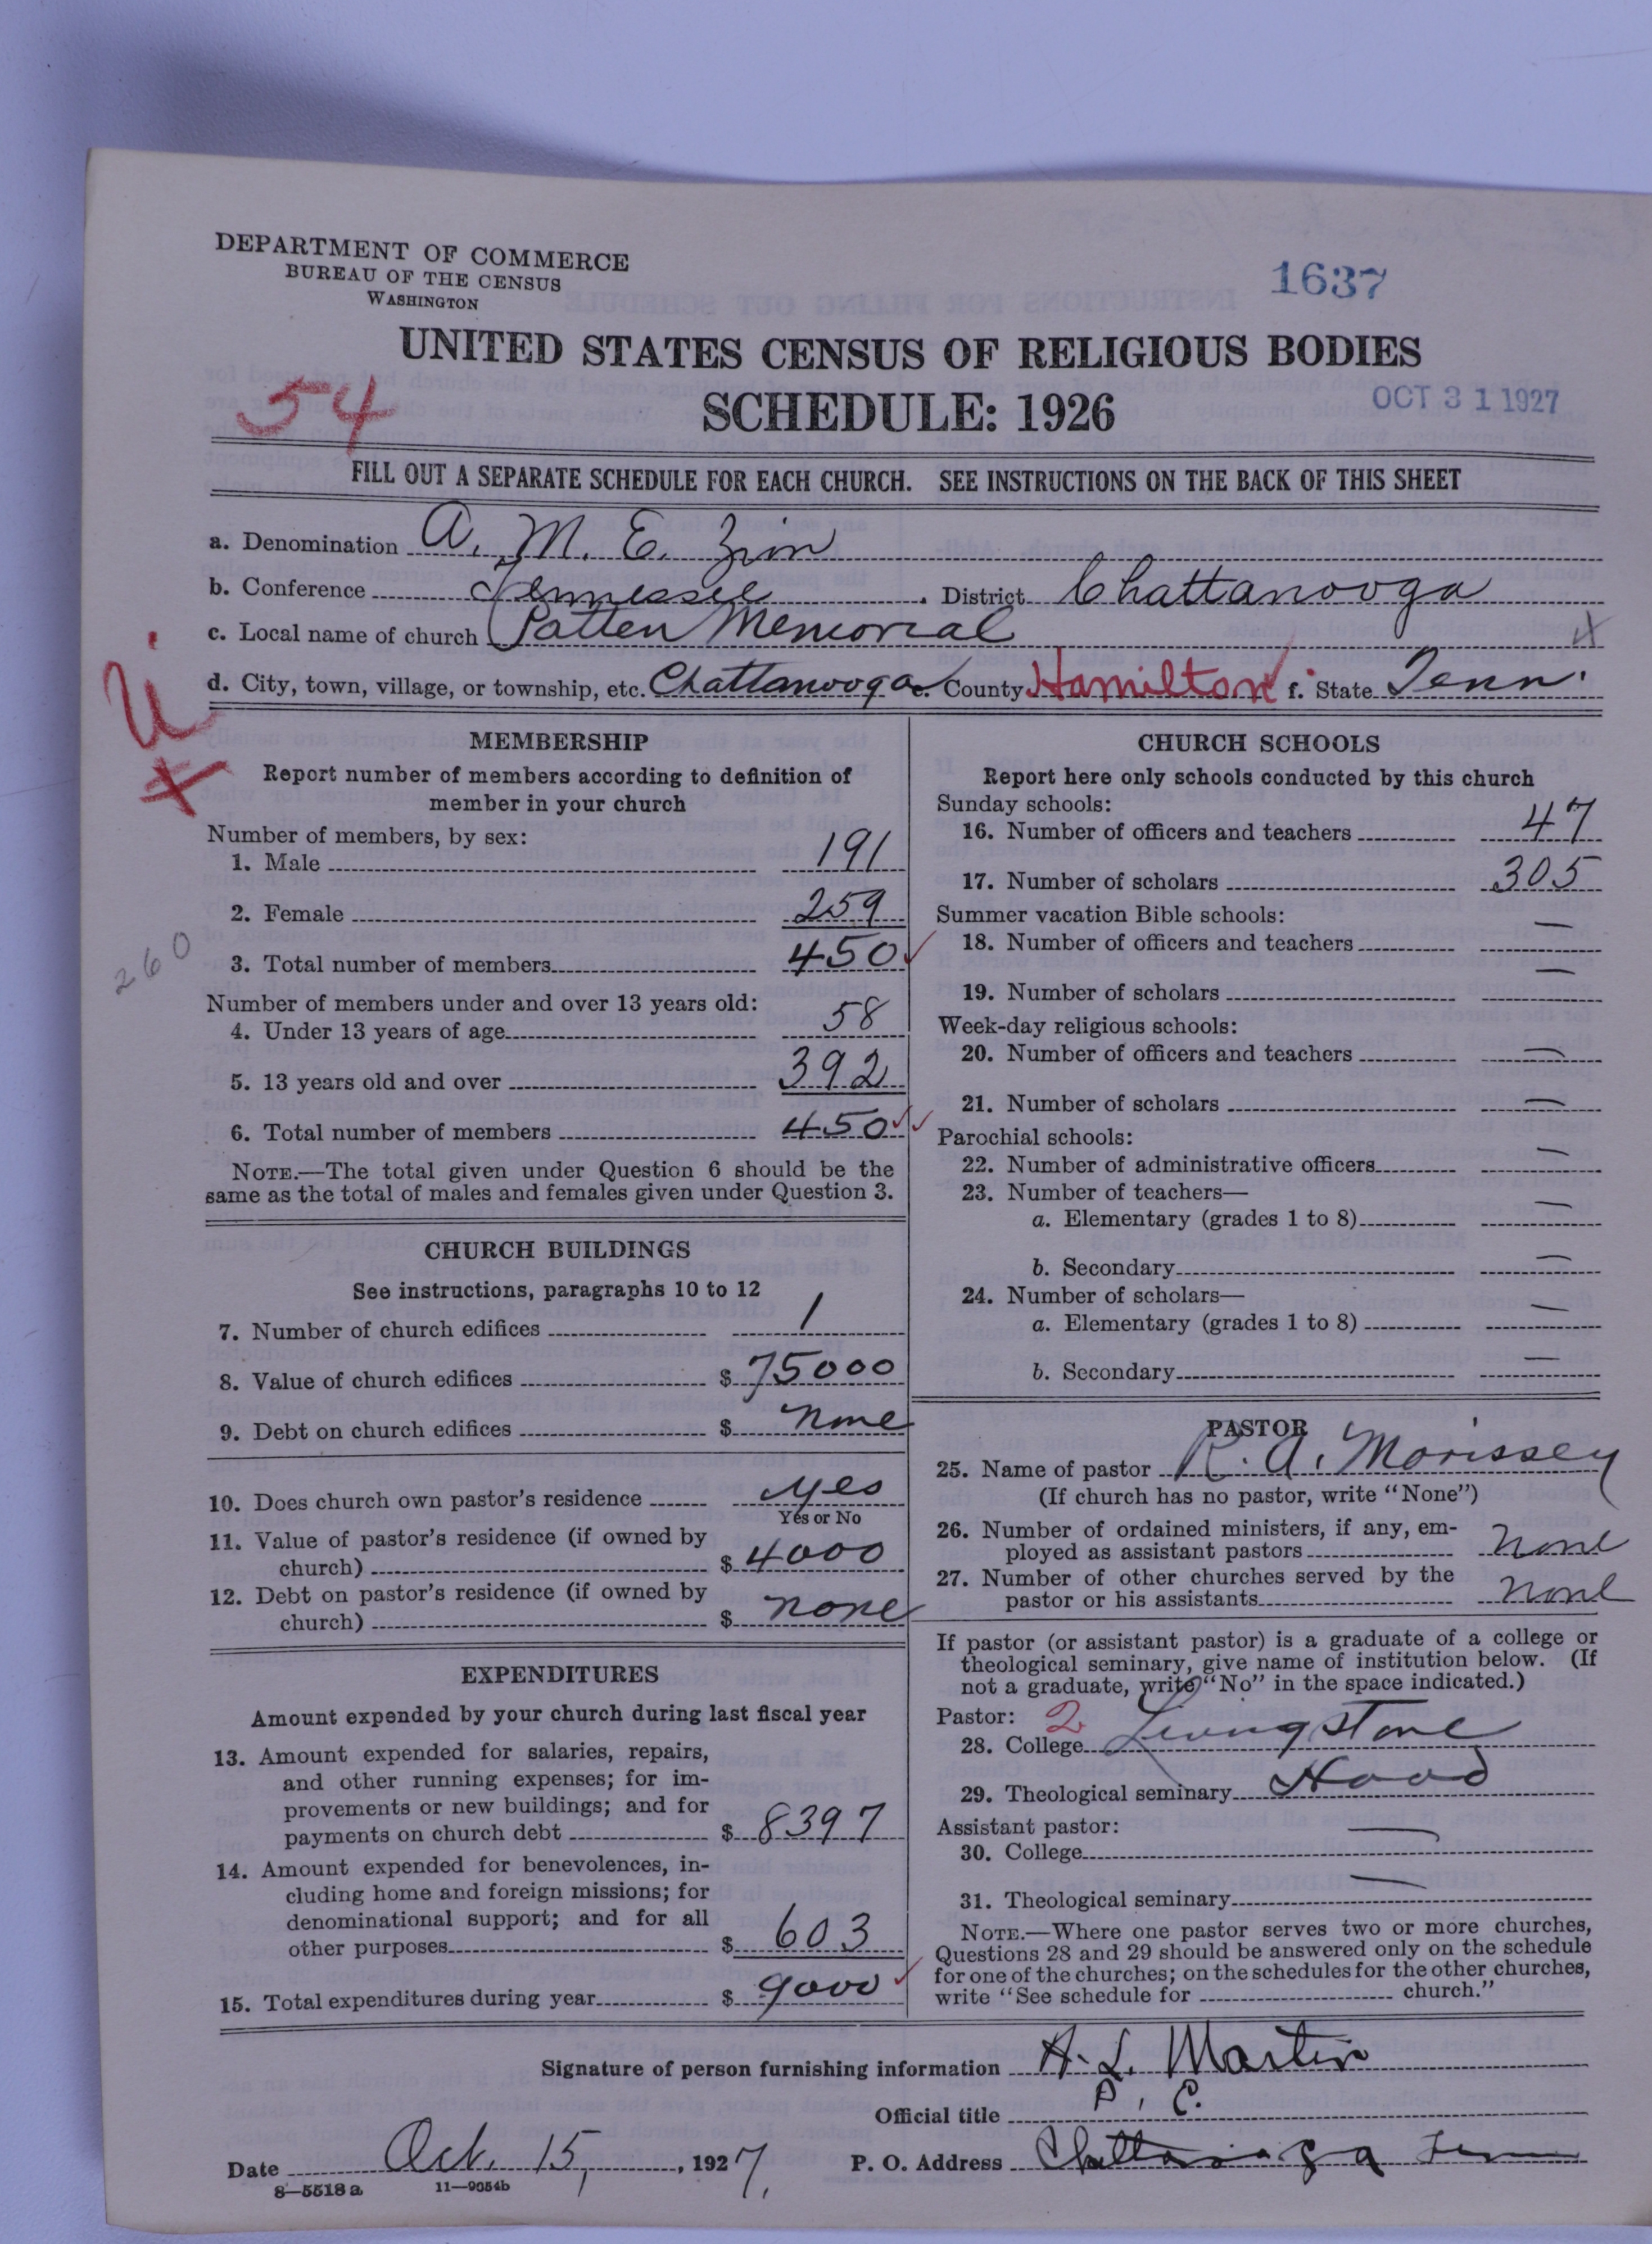 DEPARTMENT OF COMMERCE
BUREAU OF THE CENSUS
WASHINGTON
1637
UNITED STATES CENSUS OF RELIGIOUS BODIES
54
SCHEDULE: 1926
OCT 31 1927
FILL OUT A SEPARATE SCHEDULE FOR EACH CHURCH. SEE INSTRUCTIONS ON THE BACK OF THIS SHEET
a. Denomination A. M. E. Zion
b. Conference Tennessee District Chattanooga
c. Local name of church Patten Memorial
d. City, town, village, or township, etc. Chattanooga e. County Hamilton f. State Tenn.
MEMBERSHIP
Report number of members according to definition of
member in your church
Number of members, by sex:
1. Male 191
2. Female 259
260
3. Total number of members 450
Number of members under and over 13 years old:
4. Under 13 years of age 58
5. 13 years old and over 392
6. Total number of members 450
NOTE.—The total given under Question 6 should be the
same as the total of males and females given under Question 3.
CHURCH BUILDINGS
See instructions, paragraphs 10 to 12
7. Number of church edifices 1
8. Value of church edifices $ 75000
9. Debt on church edifices $ none
10. Does church own pastor's residence yes
Yes or No
11. Value of pastor's residence (if owned by
church) $ 4000
12. Debt on pastor's residence (if owned by
church) $ none
EXPENDITURES
Amount expended by your church during last fiscal year
13. Amount expended for salaries, repairs,
and other running expenses; for im-
provements or new buildings; and for
payments on church debt $ 8397
14. Amount expended for benevolences, in-
cluding home and foreign missions; for
denominational support; and for all
other purposes $ 603
15. Total expenditures during year $ 9000
CHURCH SCHOOLS
Report here only schools conducted by this church
Sunday schools:
16. Number of officers and teachers 47
17. Number of scholars 305
Summer vacation Bible schools:
18. Number of officers and teachers —
19. Number of scholars —
Week-day religious schools:
20. Number of officers and teachers —
21. Number of scholars —
Parochial schools:
22. Number of administrative officers —
23. Number of teachers—
a. Elementary (grades 1 to 8) —
b. Secondary —
24. Number of scholars—
a. Elementary (grades 1 to 8) —
b. Secondary —
PASTOR
25. Name of pastor R. A. Morissey
(If church has no pastor, write "None")
26. Number of ordained ministers, if any, em-
ployed as assistant pastors none
27. Number of other churches served by the
pastor or his assistants none
If pastor (or assistant pastor) is a graduate of a college or
theological seminary, give name of institution below. (If
not a graduate, write "No" in the space indicated.)
Pastor: 2
28. College Livingstone
29. Theological seminary Hood
Assistant pastor:
30. College —
31. Theological seminary —
NOTE.—Where one pastor serves two or more churches,
Questions 28 and 29 should be answered only on the schedule
for one of the churches; on the schedules for the other churches,
write "See schedule for church."
Signature of person furnishing information A. L. Martin
Official title P. E.
Date Oct. 15, 1927. P. O. Address Chattanooga Tenn
8—5518 a 11—9054b